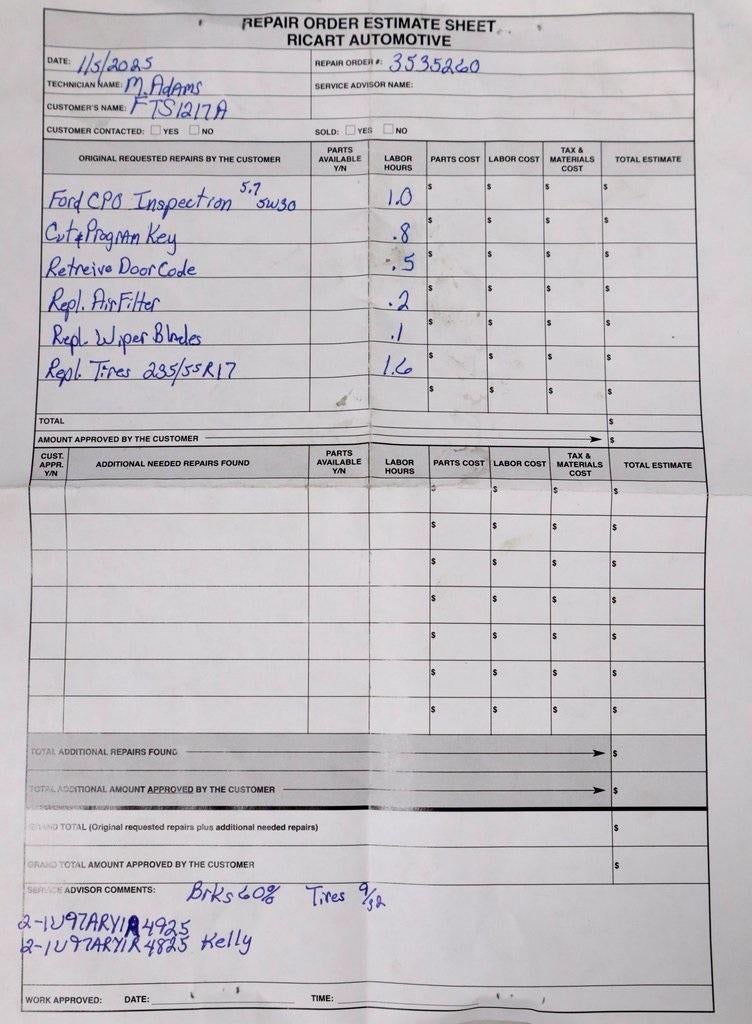 REPAIR ORDER ESTIMATE SHEET
RICART AUTOMOTIVE
DATE: 1/5/2025 REPAIR ORDER #: 3535260
TECHNICIAN NAME: M. Adams SERVICE ADVISOR NAME:
CUSTOMER'S NAME: FTS1217A
CUSTOMER CONTACTED: YES NO SOLD: YES NO
ORIGINAL REQUESTED REPAIRS BY THE CUSTOMER PARTS AVAILABLE Y/N LABOR HOURS PARTS COST LABOR COST TAX & MATERIALS COST TOTAL ESTIMATE
Ford CPO Inspection 5.7 5W30 1.0 $ $ $ $
Cut & Program Key .8 $ $ $ $
Retreive Door Code .5 $ $ $ $
Repl. Air Filter .2 $ $ $ $
Repl. Wiper Blades .1 $ $ $ $
Repl. Tires 235/55R17 1.6 $ $ $ $
$ $ $ $
TOTAL $
AMOUNT APPROVED BY THE CUSTOMER $
CUST. APPR. Y/N ADDITIONAL NEEDED REPAIRS FOUND PARTS AVAILABLE Y/N LABOR HOURS PARTS COST LABOR COST TAX & MATERIALS COST TOTAL ESTIMATE
$ $ $ $
$ $ $ $
$ $ $ $
$ $ $ $
$ $ $ $
$ $ $ $
$ $ $ $
TOTAL ADDITIONAL REPAIRS FOUND $
TOTAL ADDITIONAL AMOUNT APPROVED BY THE CUSTOMER $
GRAND TOTAL (Original requested repairs plus additional needed repairs) $
GRAND TOTAL AMOUNT APPROVED BY THE CUSTOMER $
SERVICE ADVISOR COMMENTS: Brks 60% Tires 9/32
2-1U97ARY1R4925
2-1U97ARY1R4825 Kelly
WORK APPROVED: DATE: TIME: